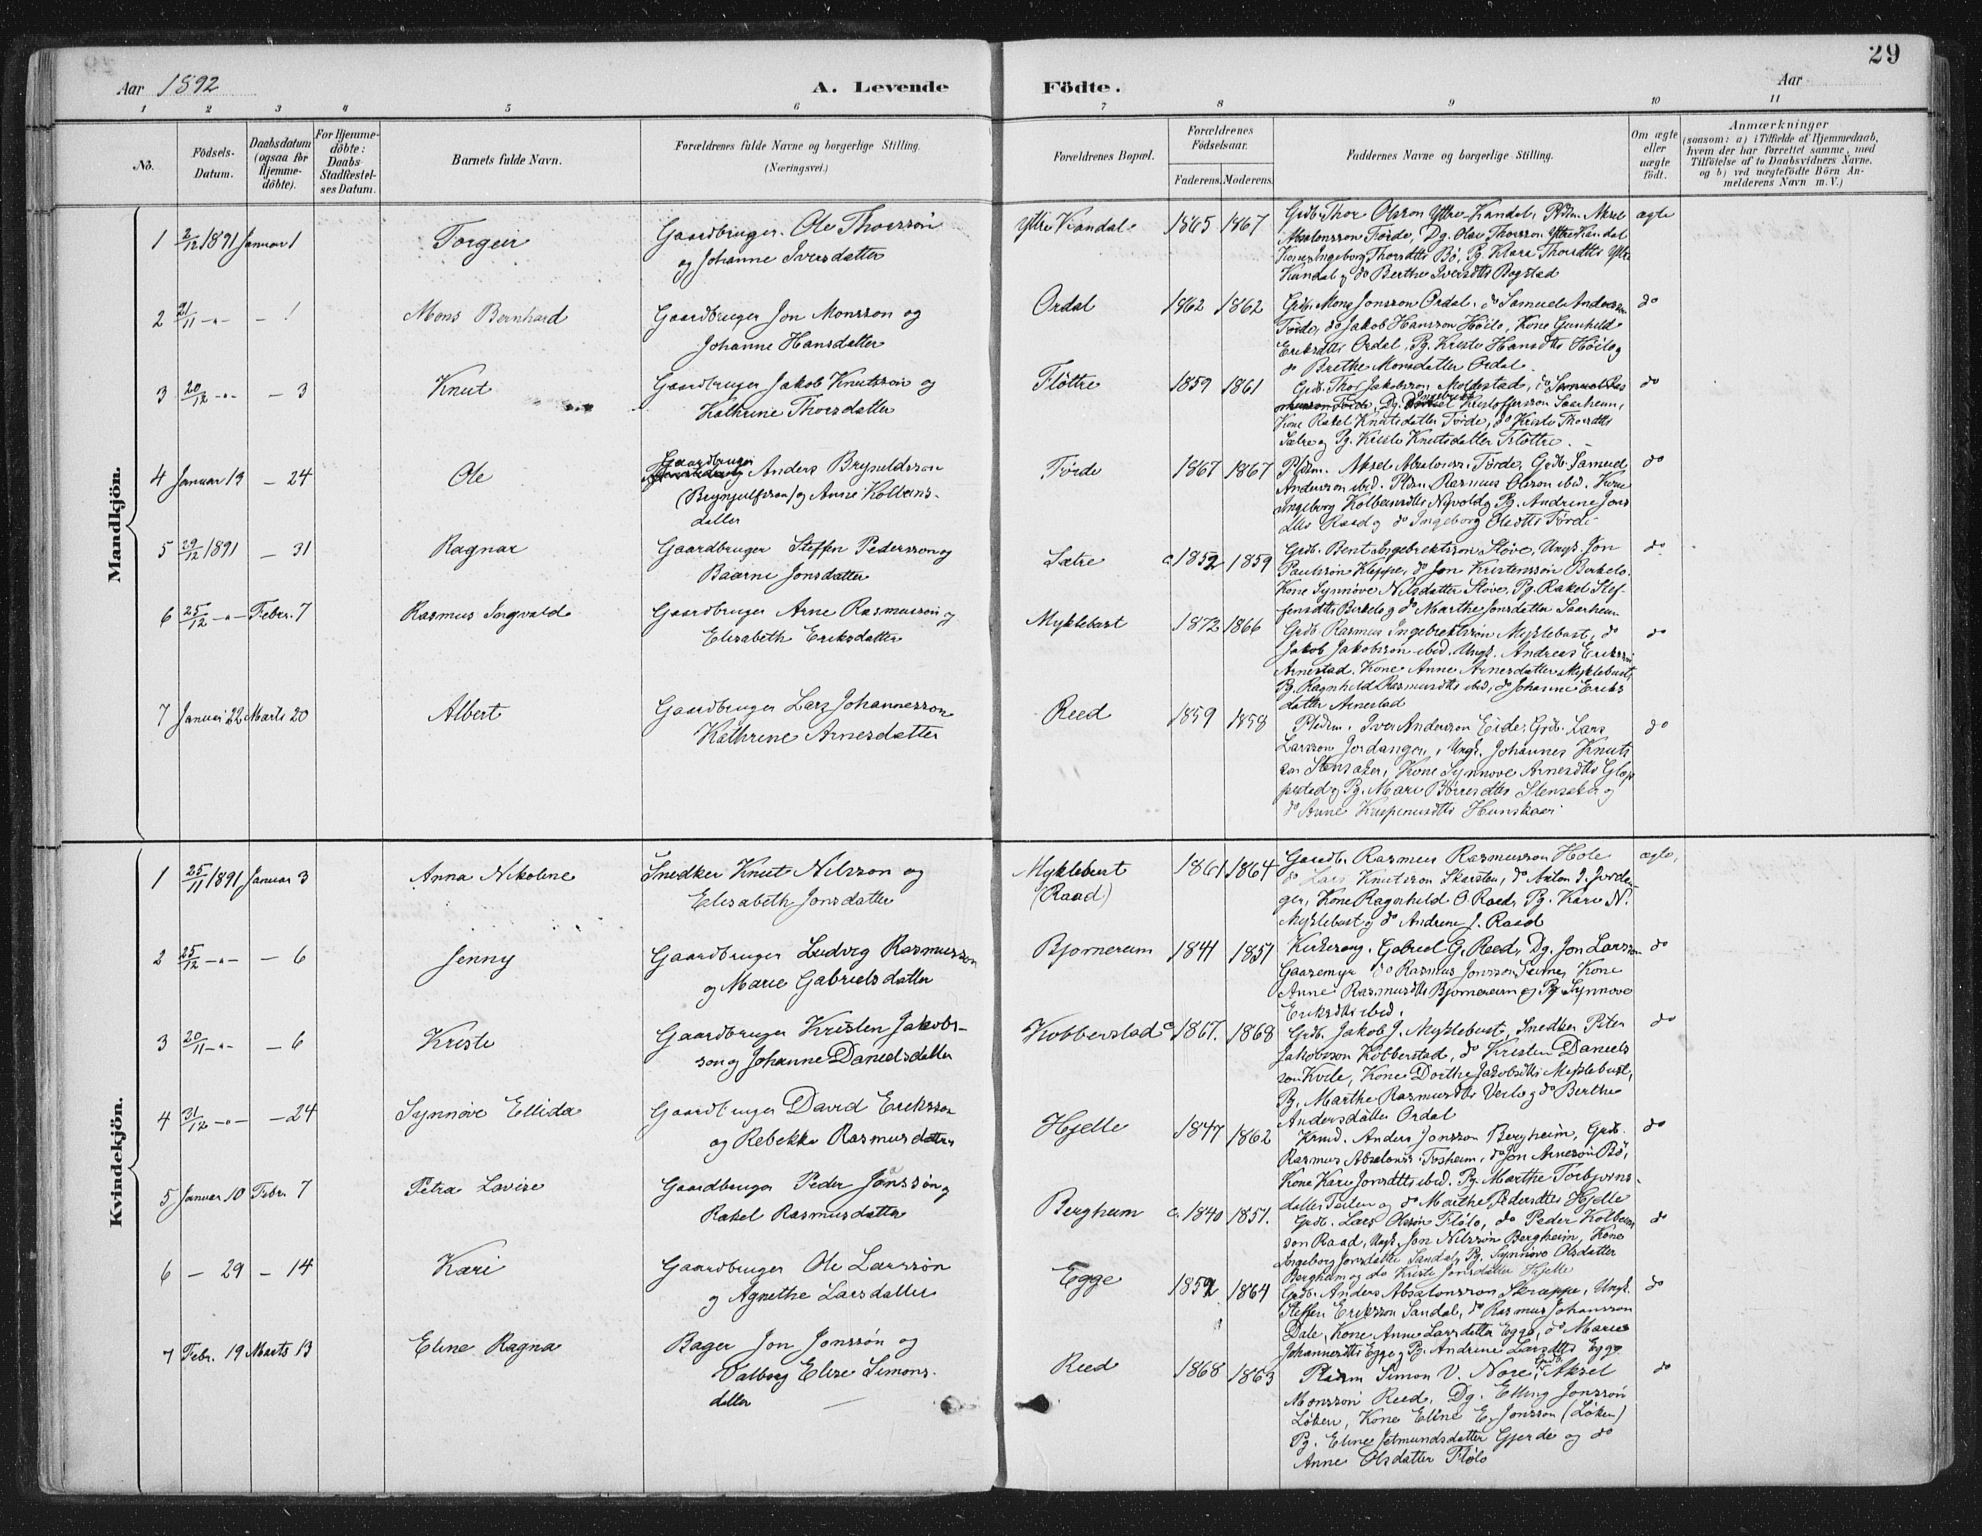 29
Aar 1892
A. Levende
Födte.
Aar
1 2 3 4 5 6 7 8 9 10 11
No.
Födsels-
Datum.
Daabsdatum
(ogsaa for
Hjemme-
döbte).
For Hjemme-
döbte:
Daabs-
Stadfæstel-
ses Datum.
Barnets fulde Navn.
Forældrenes fulde Navne og borgerlige Stilling.
(Næringsvei.)
Forældrenes Bopæl.
Forældrenes
Födselsaar.
Faderens. Moderens.
Faddernes Navne og borgerlige Stilling.
Om ægte
eller
uægte
födt.
Anmærkninger
(saasom: a) i Tilfælde af Hjemmedaab,
hvem der har forrettet samme, med
Tilföielse af to Daabsvidners Navne,
og b) ved uægtefödte Börn An-
melderens Navn m. V.)
Mandkjön.
1 2/12 1891 Januar 1 Torgeir
Gaardbruger Ole Thorssøn
og Johanne Iversdatter
Ytre Kandal 1865 1867
Grdb. Thor Olsson Ytre-Kandal, Pldm. Aksel
Absalonsson Førde, Dg. Olai Thorsson Ytre Kandal
Kone Ingeborg Thorsdtts Bø, Pg. Klara Thorsdtts Ytre
Kandal og do Berthe Iversdtts Bogstad
ægte
2 21/11 -"- - 1 Mons Bernhard
Gaardbruger Jon Monsson og
Johanne Hansdatter
Ordal 1862 1862
Grdb. Mons Jonsson Ordal, do Samuel Andersson
Førde, do Jakob Hansson Høilo, Kone Gunhild
Eriksdtts Ordal, Pg. Kristi Hansdtts Høilo og
do Brethe Monsdatter Ordal.
do
3 20/12 -"- - 3 Knut
Gaardbruger Jakob Knutssøn og
Kathrine Thorsdatter
Fløttre 1859 1861
Grdb. Thor Jakobsson Moldestad, do Samuel Ras
musson Førde, Dg. Ingebrigt Kristoffersson Saarheim,
Kone Rakel Knutsdatter Førde, do Kristi Thorsdtts
Sætre og Pg. Kristi Knutsdatter Fløttre.
do
4 Januar 13 - 24 Ole
Gaardbruger Anders Bryneldsson
(Brynjulfsson) og Anne Kolbens-
datter
Førde 1867 1867
Pldm. Aksel Absalonss. Førde, Grdb. Samuel
Andersson ibid. Pldm. Rasmus Olsson ibid. Kone
Ingeborg Kolbeinsdtts Nyvold og Pg. Andrine Jons
dtts Raad og do Ingeborg Olsdtts Førde
do
5 29/12 1891 - 31 Ragnar
Gaardbruger Steffen Pedersson og
Baarni Jonsdatter
Sætre c. 1852 1859
Grdb. Bent Ingebrektsson Støve, Ungk. Jon
Paulsson Kleppe, do Jon Kristensson Birkelo.
Kone Synnøve Nilsdatter Støve, Pg. Rakel Stef-
fensdtts Birkelo og do Marthe Jonsdatter Saarheim
do
6 25/12 -"- Febr. 7 Rasmus Ingvald
Gaardbruger Arne Rasmusson og
Elisabeth Eriksdatter
Myklebust 1872 1866
Grdb. Rasmus Ingebrektsson Myklebust, do
Jakob Jakobsson ibid. Ungk. Andreas Eriksson
Arnestad. Kone Anne Arnesdatter Myklebust,
Pg. Ragnhild Rasmusdtts ibid, do Johanne Eriks
datter Arnestad
do
7 Januar 22 Marts 20 Albert
Gaardbruger Lars Johannesson
Kathrine Arnesdatter
Reed 1859 1858
Pldsm. Iver Andersson Eide, Grdb. Lars
Larsson Jordanger, Ungk. Johannes Knuts
son Stensaker, Kone Synnøve Arnesdtts Glop
pestad og Pg. Mari Børresdtts Stensaker og
do Anne Krispinusdtts Hunskaar
do
Kvindekjön.
1 25/11 1891 Januar 3 Anna Nikoline
Snedker Knut Nilsson og
Elisabeth Jonsdatter
Myklebust
(Raad)
1861 1864
Gaardb. Rasmus Rasmusson Hole
do Lars Knutsson Skarsten, do Anton I. Jordan-
ger, Kone Ragnhild O. Raed, Pg. Kari N.
Myklebust og do Andrine J. Raad
ægte,
2 25/12 -"- - 6 Jenny
Gaardbruger Ludvig Rasmusson
og Marie Gabrielsdatter
Bjørnereim 1841 1851
Kirkesang. Gabriel G. Reed, Dg. Jon Larsson
Gaaremyr do Rasmus Jonsson Seime, Kone
Anne Rasmusdtts Bjørnereim og Pg. Synnøve
Eriksdtts ibid.
do
3 20/11 -"- - 6 Kristi
Gaardbruger Kristen Jakobs-
son og Johanne Danielsdatter
Kobberstad c. 1867. 1868
Grdb. Jakob J. Myklebust, Snedker Peter
Jakobsson Kobberstad, do Kristen Daniels
son Kvile, Kone Dorthe Jakobsdtts Myklebust,
Pg. Marthe Rasmusdtts Verlo og do Berthe
Andersdatter Ordal
do
4 31/12 -"- - 24 Synnøve Ellida
Gaardbruger David Eriksson
og Rebekka Rasmusdatter
Hjelle 1847 1862
Krml. Anders Jonsson Bergheim, Grdb.
Rasmus Absalonss. Fosheim, do Jon Arnesøn Bø,
Kone Kari Jonsdtts ibid. Pg. Marthe Torbjørns-
datter Teiten og do Marthe Pedersdtts Hjelle
do
5 Januar 10 Febr. 7 Petra Lovise
Gaardbruger Peder Jonssøn og
Rakel Rasmusdatter
Bergheim c. 1840 1851.
Grdb. Lars Olsøn Flølo, do Peder Kolbens
son Raad, Ungk. Jon Nilssøn Bergheim, Kone
Ingeborg Jonsdatter Sandal, Pg. Synnøve Olsdatter
Bergheim og do Kristi Jonsdatter Hjelle
do
6 - 29 - 14 Kari
Gaardbruger Ole Larssøn
og Agnethe Larsdatter
Egge 1852 1864
Grdb. Anders Absalonsson Skrøppe, Ungk.
Steffen Eriksson Sandal, do Rasmus Johansson
Dale, Kone Anne Larsdatter Egge, do Marie
Johannesdtts Egge og Pg. Andrine Larsdtts Egge
do
7 Febr. 19 Marts 13 Eline Ragna
Bager Jon Jonssøn og
Valborg Elise Simons-
datter
Reed 1868 1863
Pldsm Simon V. Nore, Grdb. Aksel
Monsson Reed, Dg. Elling Jonssøn
Løken, Kone Eline E. Jonssøn (Løken)
Pg. Eline Jetmundsdatter Gjerde og do
Anne Olsdatter Flølo
do